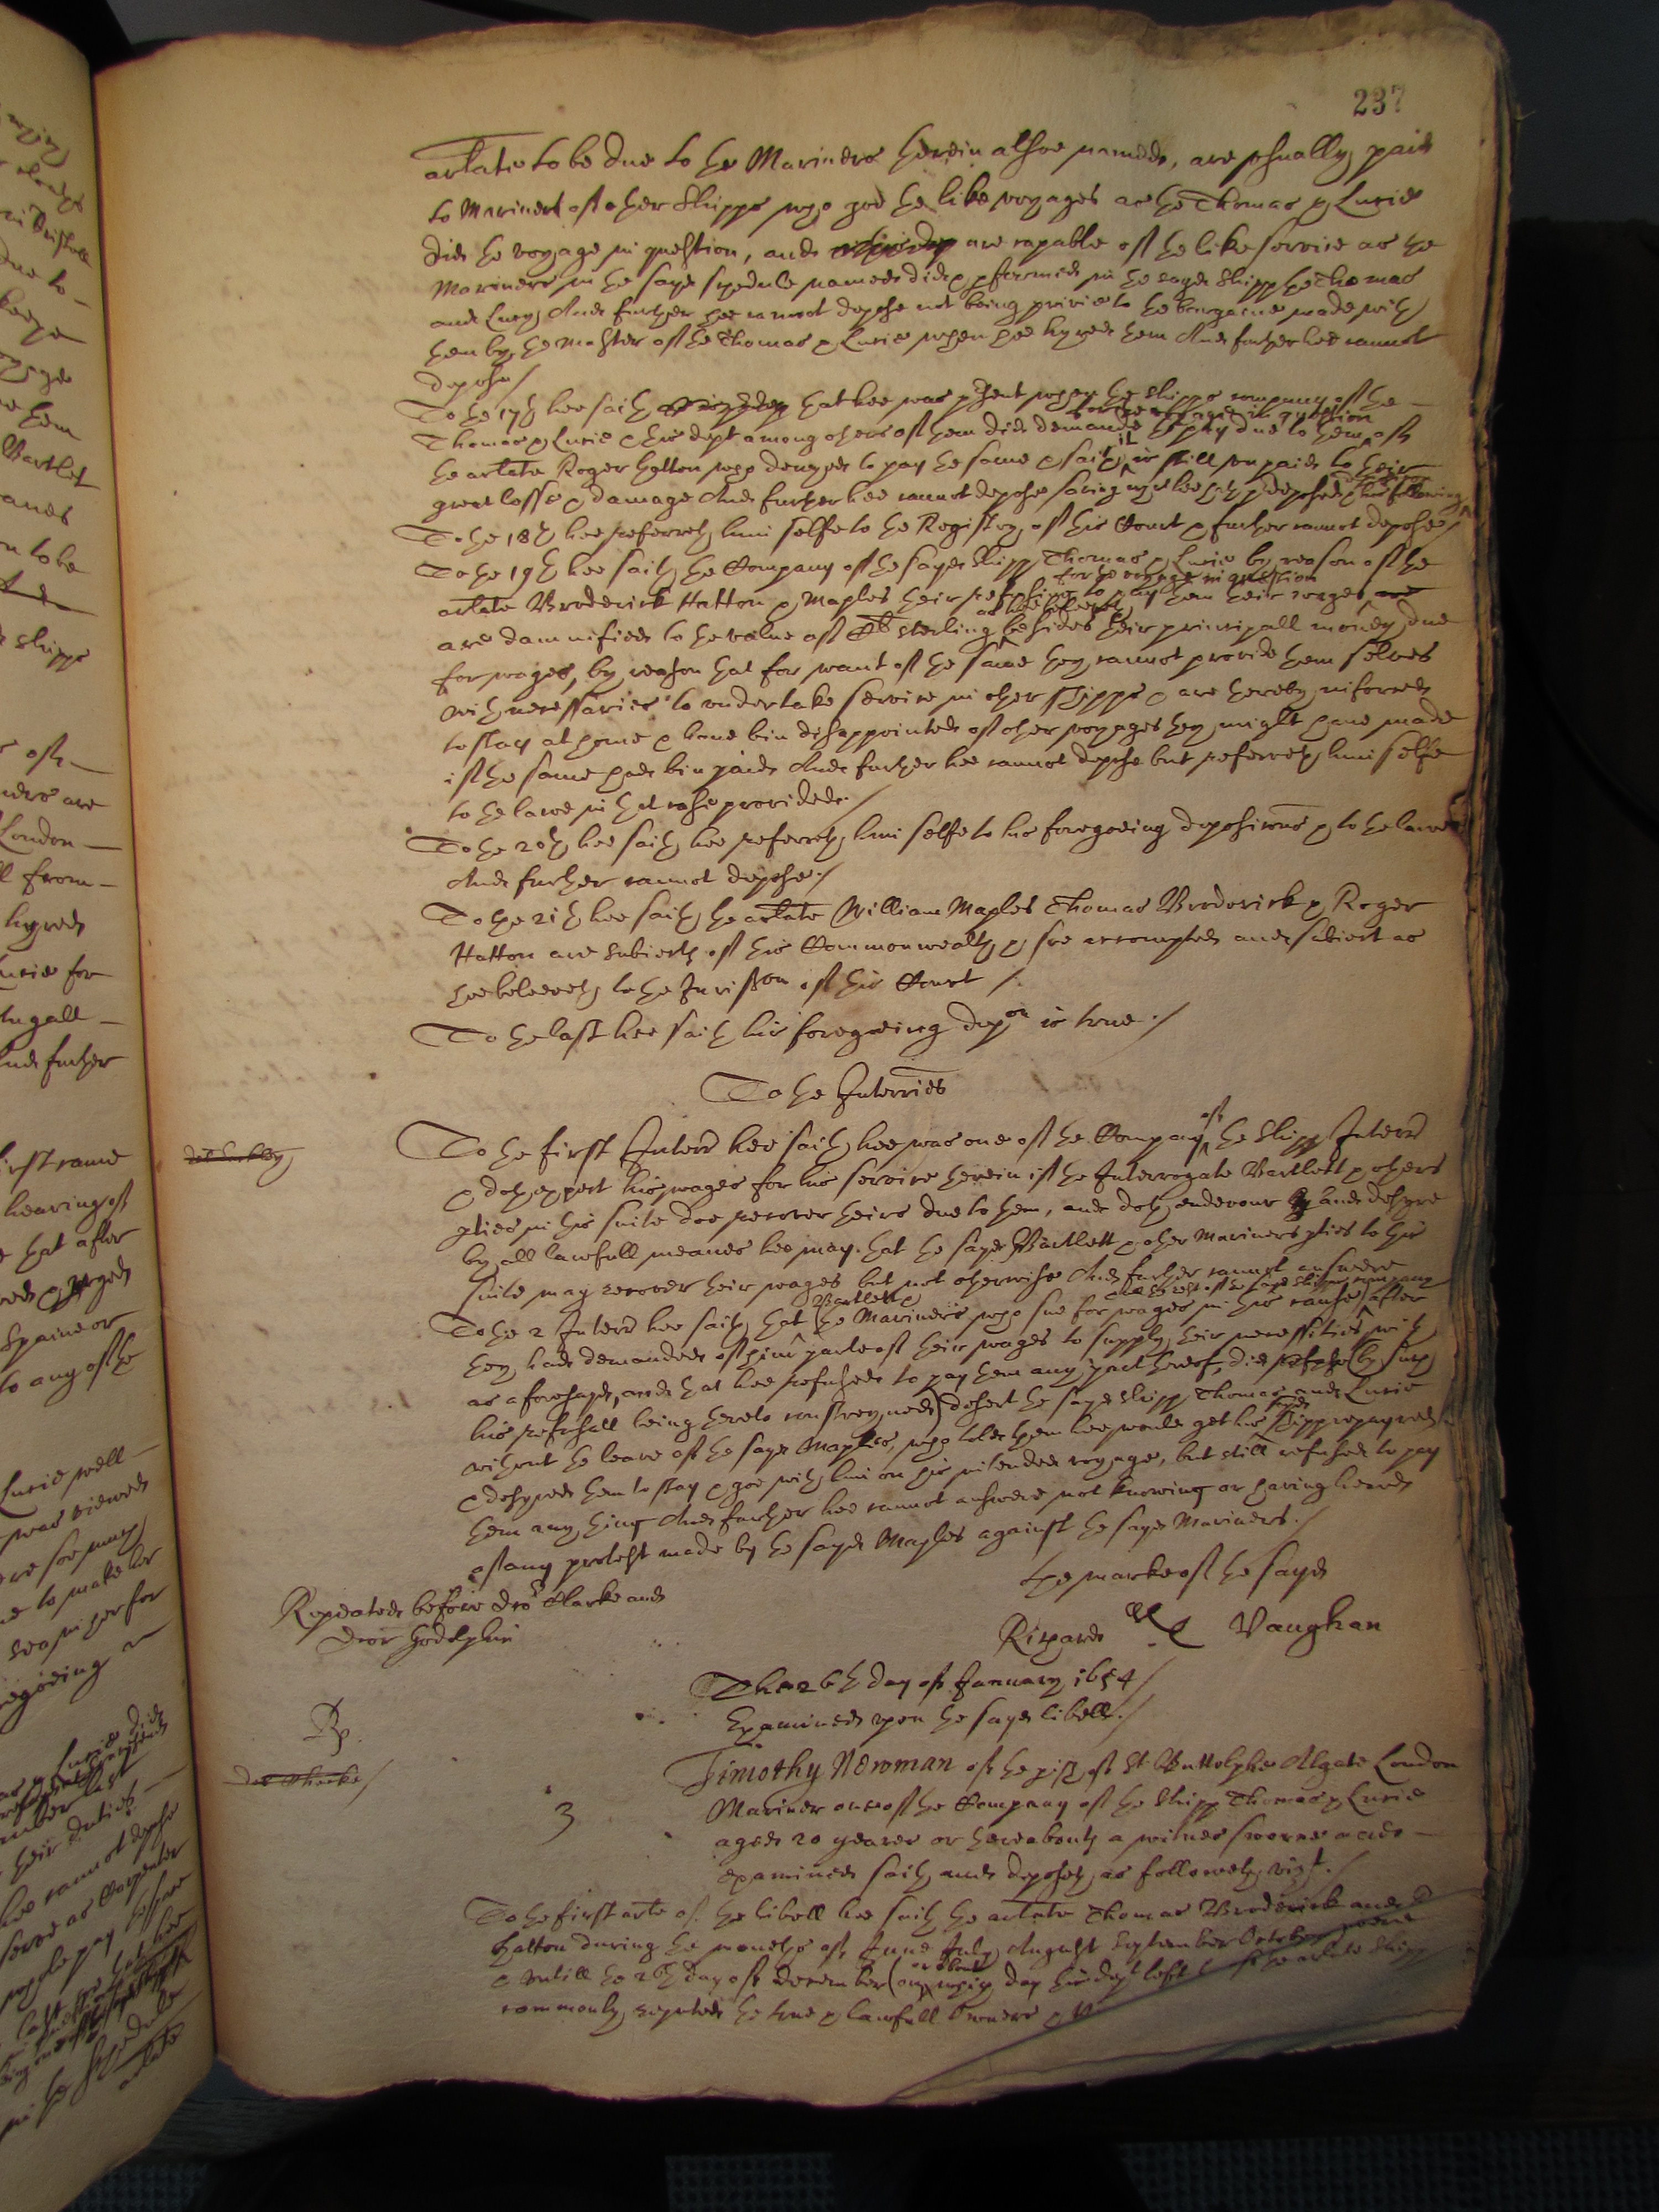 237
arlate to be due to the Mariners therein alsoe named, are usually paid
to Mariners of other Shipps who goe the like voyages as the Thomas & Lucie
did the voyage in question, and are capable of the like service as the
Mariners in the sayd schedule named did & performed in the sayd shipp the Thomas
and Lucy, And further hee cannot depose not being privie to the bargaine made with
them by the Master of the Thomas & Lucie when hee hyred them And further hee cannot
depose/
To the 17th hee saith that hee was present when the shipps company of the
Thomas & Lucie & this dept among others of them did demande the pay due to them for the voyage in question of
the arlate Roger Hatton who denyed to pay the same & saith it is still unpaid to their
great losse & damage And further hee cannot depose saving what hee hath predeposed & his following
To the 18th hee referreth him selfe to the Registry of this Court & further cannot depose/
To the 19th hee saith the Company of the sayd shipp Thomas & Lucie by reason of the
arlate Broderick Hatton & Maples their refusing to pay them their wages for the voyage in question
are damnified to the value of sterling as hee beleeveth besides their principall money due
for wages, by reason that for want of the same they cannot provide them selves
with necessaries to undertake service in other shipps & are thereby inforced
to stay at home & have bin disappointed of other voyages they might have made
if the same had bin paid And further hee cannot depose but referreth him selfe
to the lawe in that case provided./
To the 20th hee saith hee referreth him selfe to his foregoeing depositions & to the lawe
And further cannot depose./
To the 21th hee saith the arlate William Maples Thomas Broderick & Roger
Hatton are subiects of this Commonwealth & soe accompted and subiect as
hee beleeveth to the Jurisdiction of this Court /.
To the last hee saith his foregoeing depon is true./
To the Interries
To the first Interr hee saith hee was one of the Company of the shipp Interr
& doth expect his wages for his service therein if the Interrogate Bartlett & others
pties in this suite doe recover theirs due to them, and doth endevour and desyre
by all lawfull meanes hee may. that the sayd Bartlett & other Mariners pties to this
suite may recover their wages but not otherwise And further cannot answere
To the 2 Interr hee saith that the Bartlett & Mariners who sue for wages in this cause & the rest of the sayd shipps company after
they had demanded of him parte of their wages to supply their necessities with
as aforesayd, and that hee refused to pay them any part thereof, did (by such
his refusall being thereto constreyned) desert the sayd shipp Thomas and Lucie
without the leave of the sayd Maples, who told them hee would get his sayd shipp repayred
& desyred them to stay & goe with him on his intended voyage, but still refused to pay
them any thing And further hee cannot answere not knowing or having heard
of any protest made by the sayd Maples against the sayd Mariners./
The marke of the sayd
Repeated before Dr Clarke and
Dcor Godolphin
Richard Vaughan
The 26th day of January 1654/
Examined upon the sayd libell./
Rp.
3
Timothy Newman of the pish of St Buttolphs Algate London
Mariner one of the Company of the shipp Thomas & Lucie
aged 20 yeares or thereabouts a witnes sworne and
examined saith and deposeth as followeth vizt./
To the first arte of the libell hee saith the arlate Thomas Broderick and
Hatton during the moneths of June July August September October were
& untill the 26th day of December (on or about which day this dept left the arlate shipp
commonly reputed the true & lawfull Owners